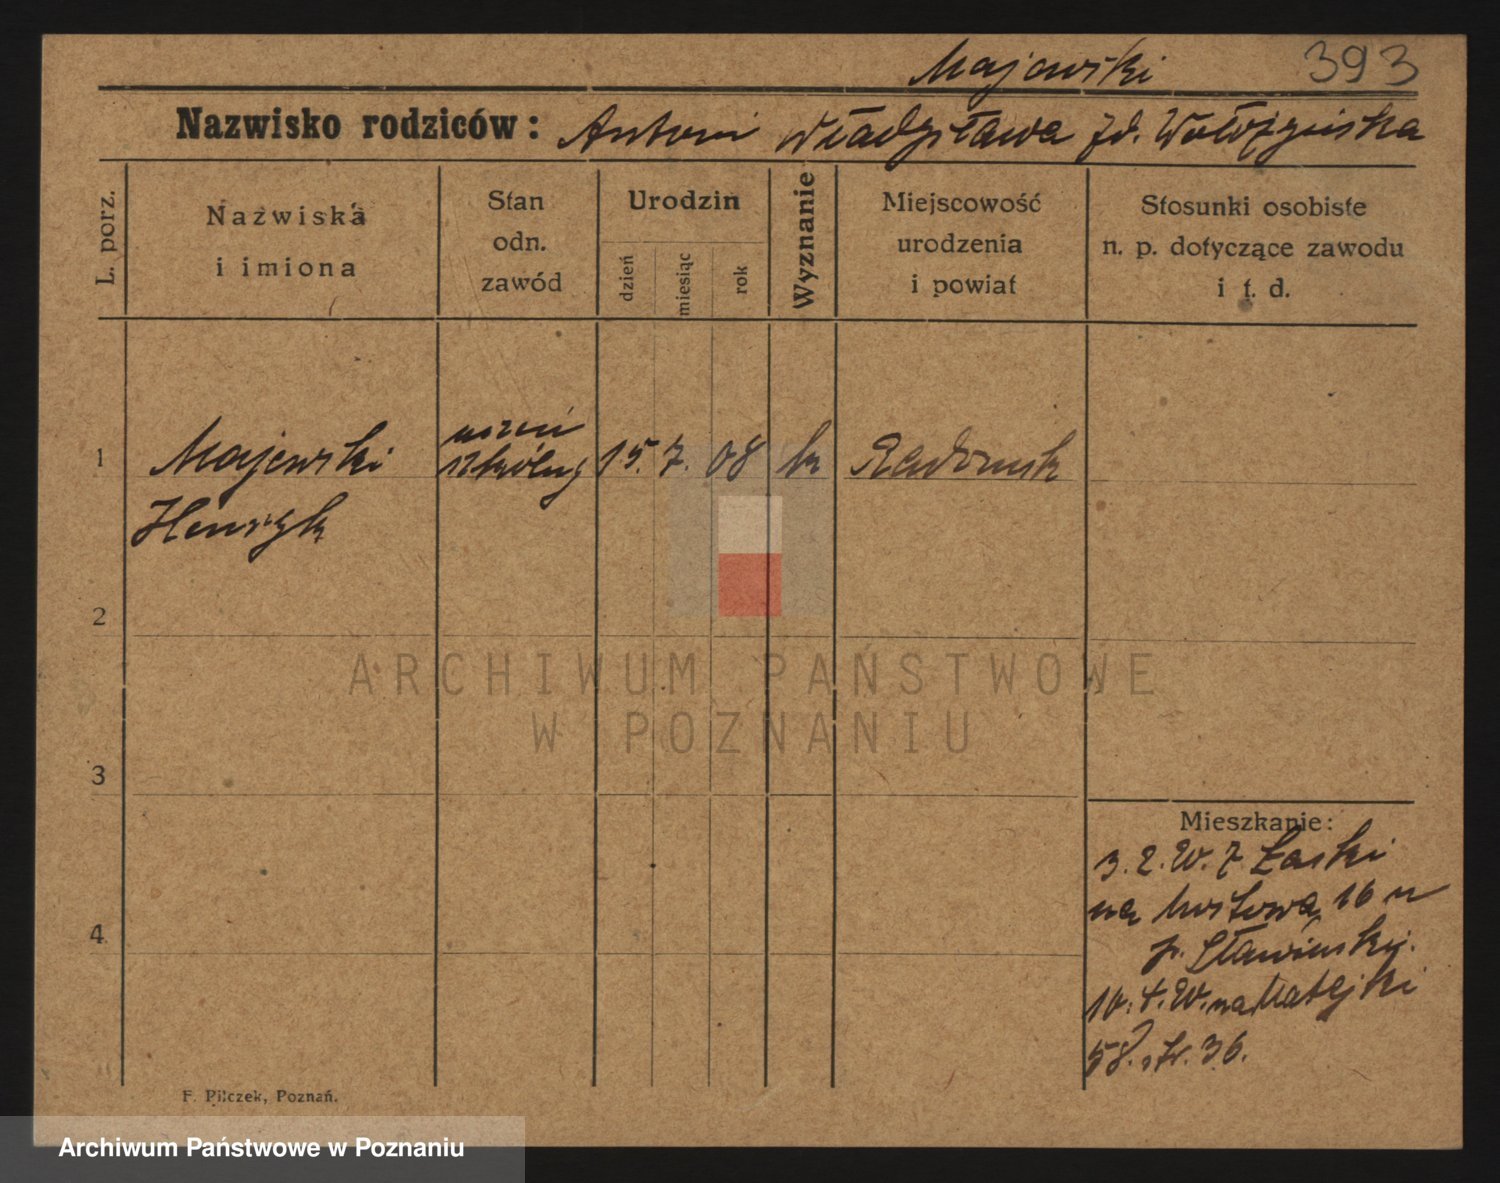 Majewski 393
Nazwisko rodziców: Antoni Władysława zd.
L. porz.
Nazwiska
i imiona
Stan
odn.
zawód
Urodzin
dzień
miesiąc
rok
Wyznanie
Miejscowość
urodzenia
i powiat
Stosunki osobiste
n. p. dotyczące zawodu
i t. d.
1 Majewski uczeń szkólny 15. 7. 08 k Radomsk
Henryk
2
3
4
Mieszkanie:
3. 2. Łaski
na Mostowa 16 u
p.
10. 4. na Matejki
58. 36.
F. Pilczek, Poznań.
ARCHIWUM PAŃSTWOWE
W POZNANIU
Archiwum Państwowe w Poznaniu